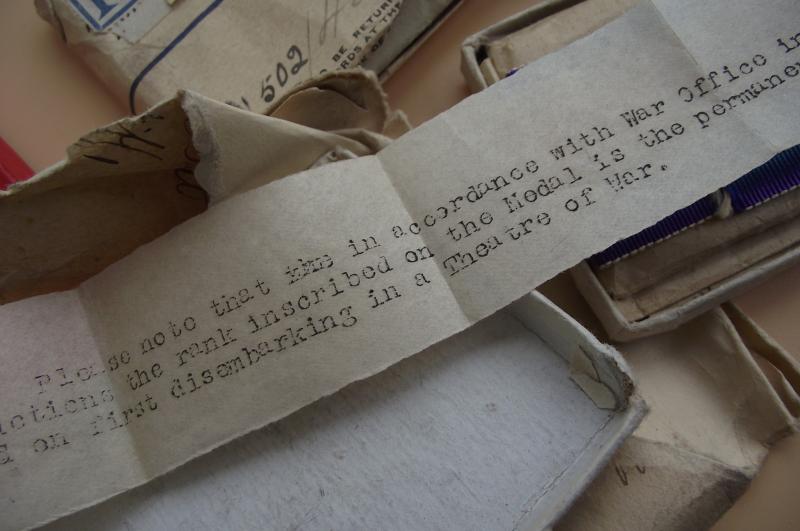 N 502/14
BE RETURN
RDS AT THE
OF
Please note that the in accordance with War Office in
ictions the rank inscribed on the Medal is the permanen
d on first disembarking in a Theatre of War.